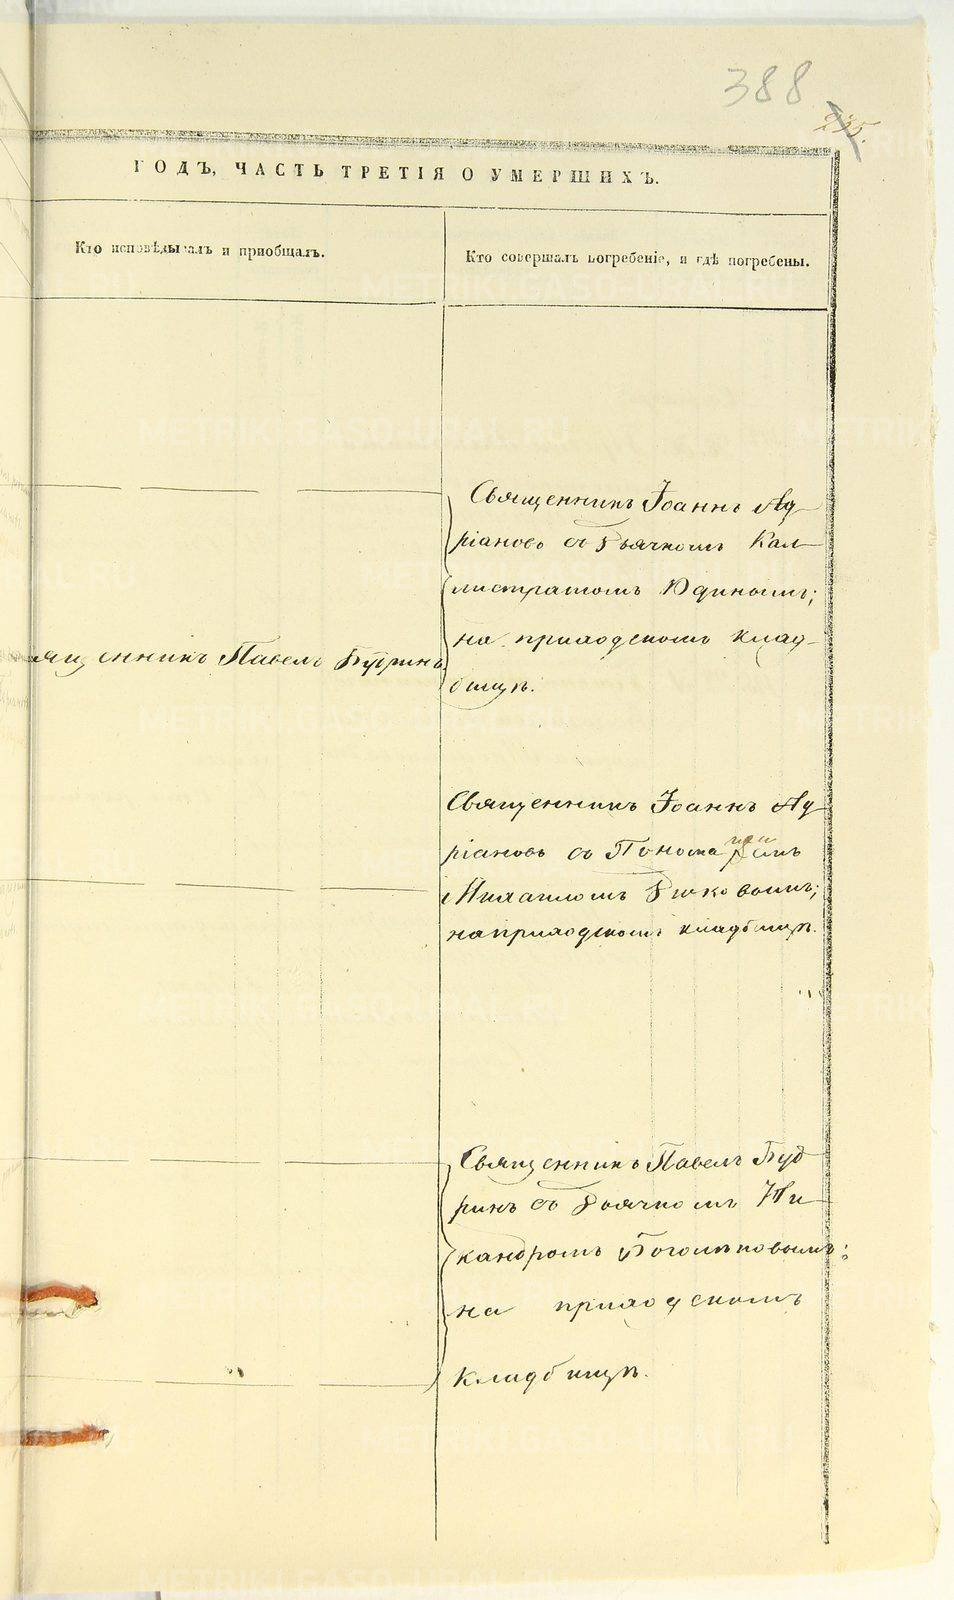 388
235
ГОДЪ, ЧАСТЬ ТРЕТІЯ О УМЕРШИХЪ.
Кто исповѣдывалъ и пріобщалъ.
Кто совершалъ погребеніе, и гдѣ погребены.
Священникъ Іоаннъ Ад-
ріановъ съ Дьячкомъ Кал-
листратомъ Юдинымъ;
на приходскомъ клад-
бищѣ.
ященникъ Павелъ Будринъ
Священникъ Іоаннъ Ад-
ріановъ съ Понома
Михаиломъ
на приходскомъ кладбищѣ.
Священникъ Павелъ Буд-
ринъ съ Дьячкомъ Ни-
кандромъ Боголѣповымъ:
на приходскомъ
кладбищѣ.
METRIKI.GASO-URAL.RU